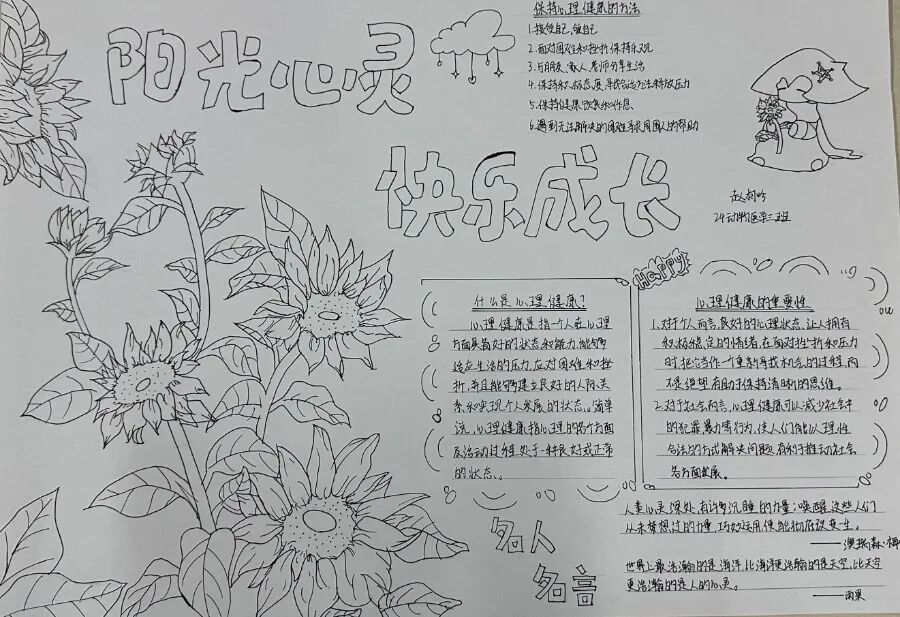 阳光心灵
快乐成长
保持心理健康的方法
1.接受自己,爱自己
2.面对困难和挫折,保持乐观
3.与朋友、家人、老师分享生活
4.保持积极态度,寻找合适方法释放压力
5.保持健康饮食和作息
6.遇到无法解决的困难寻求周围人的帮助
24动物医学三班
什么是心理健康?
心理健康是指一个人在心理
方面具有好的状态和能力,能够
适应生活的压力,应对困难和挫
折,并且能够建立良好的人际关
系和实现个人发展的状态。简单
说,心理健康指心理的各个方面
及活动过程处于一种良好或正常
的状态。
Happy
心理健康的重要性
1.对于个人而言,良好的心理状态,让人拥有
积极稳定的情绪,在面对挫折和压力
时,把它当作一个重新寻找机会的过程,而
不是绝望,有助于保持清晰的思维。
2.对于社会而言,心理健康可以减少社会中
的犯罪暴力等行为,使人们能以理性
合法的方式解决问题,有利于推动社会
各方面发展。
名人
名言
人类心灵深处,有许多沉睡的力量;唤醒这些人们
从未梦想过的力量,巧妙运用,便能彻底改变一生。
——澳瑞森·梅
世界上最浩瀚的是海洋,比海洋更浩瀚的是天空,比天空
更浩瀚的是人的心灵。
——雨果